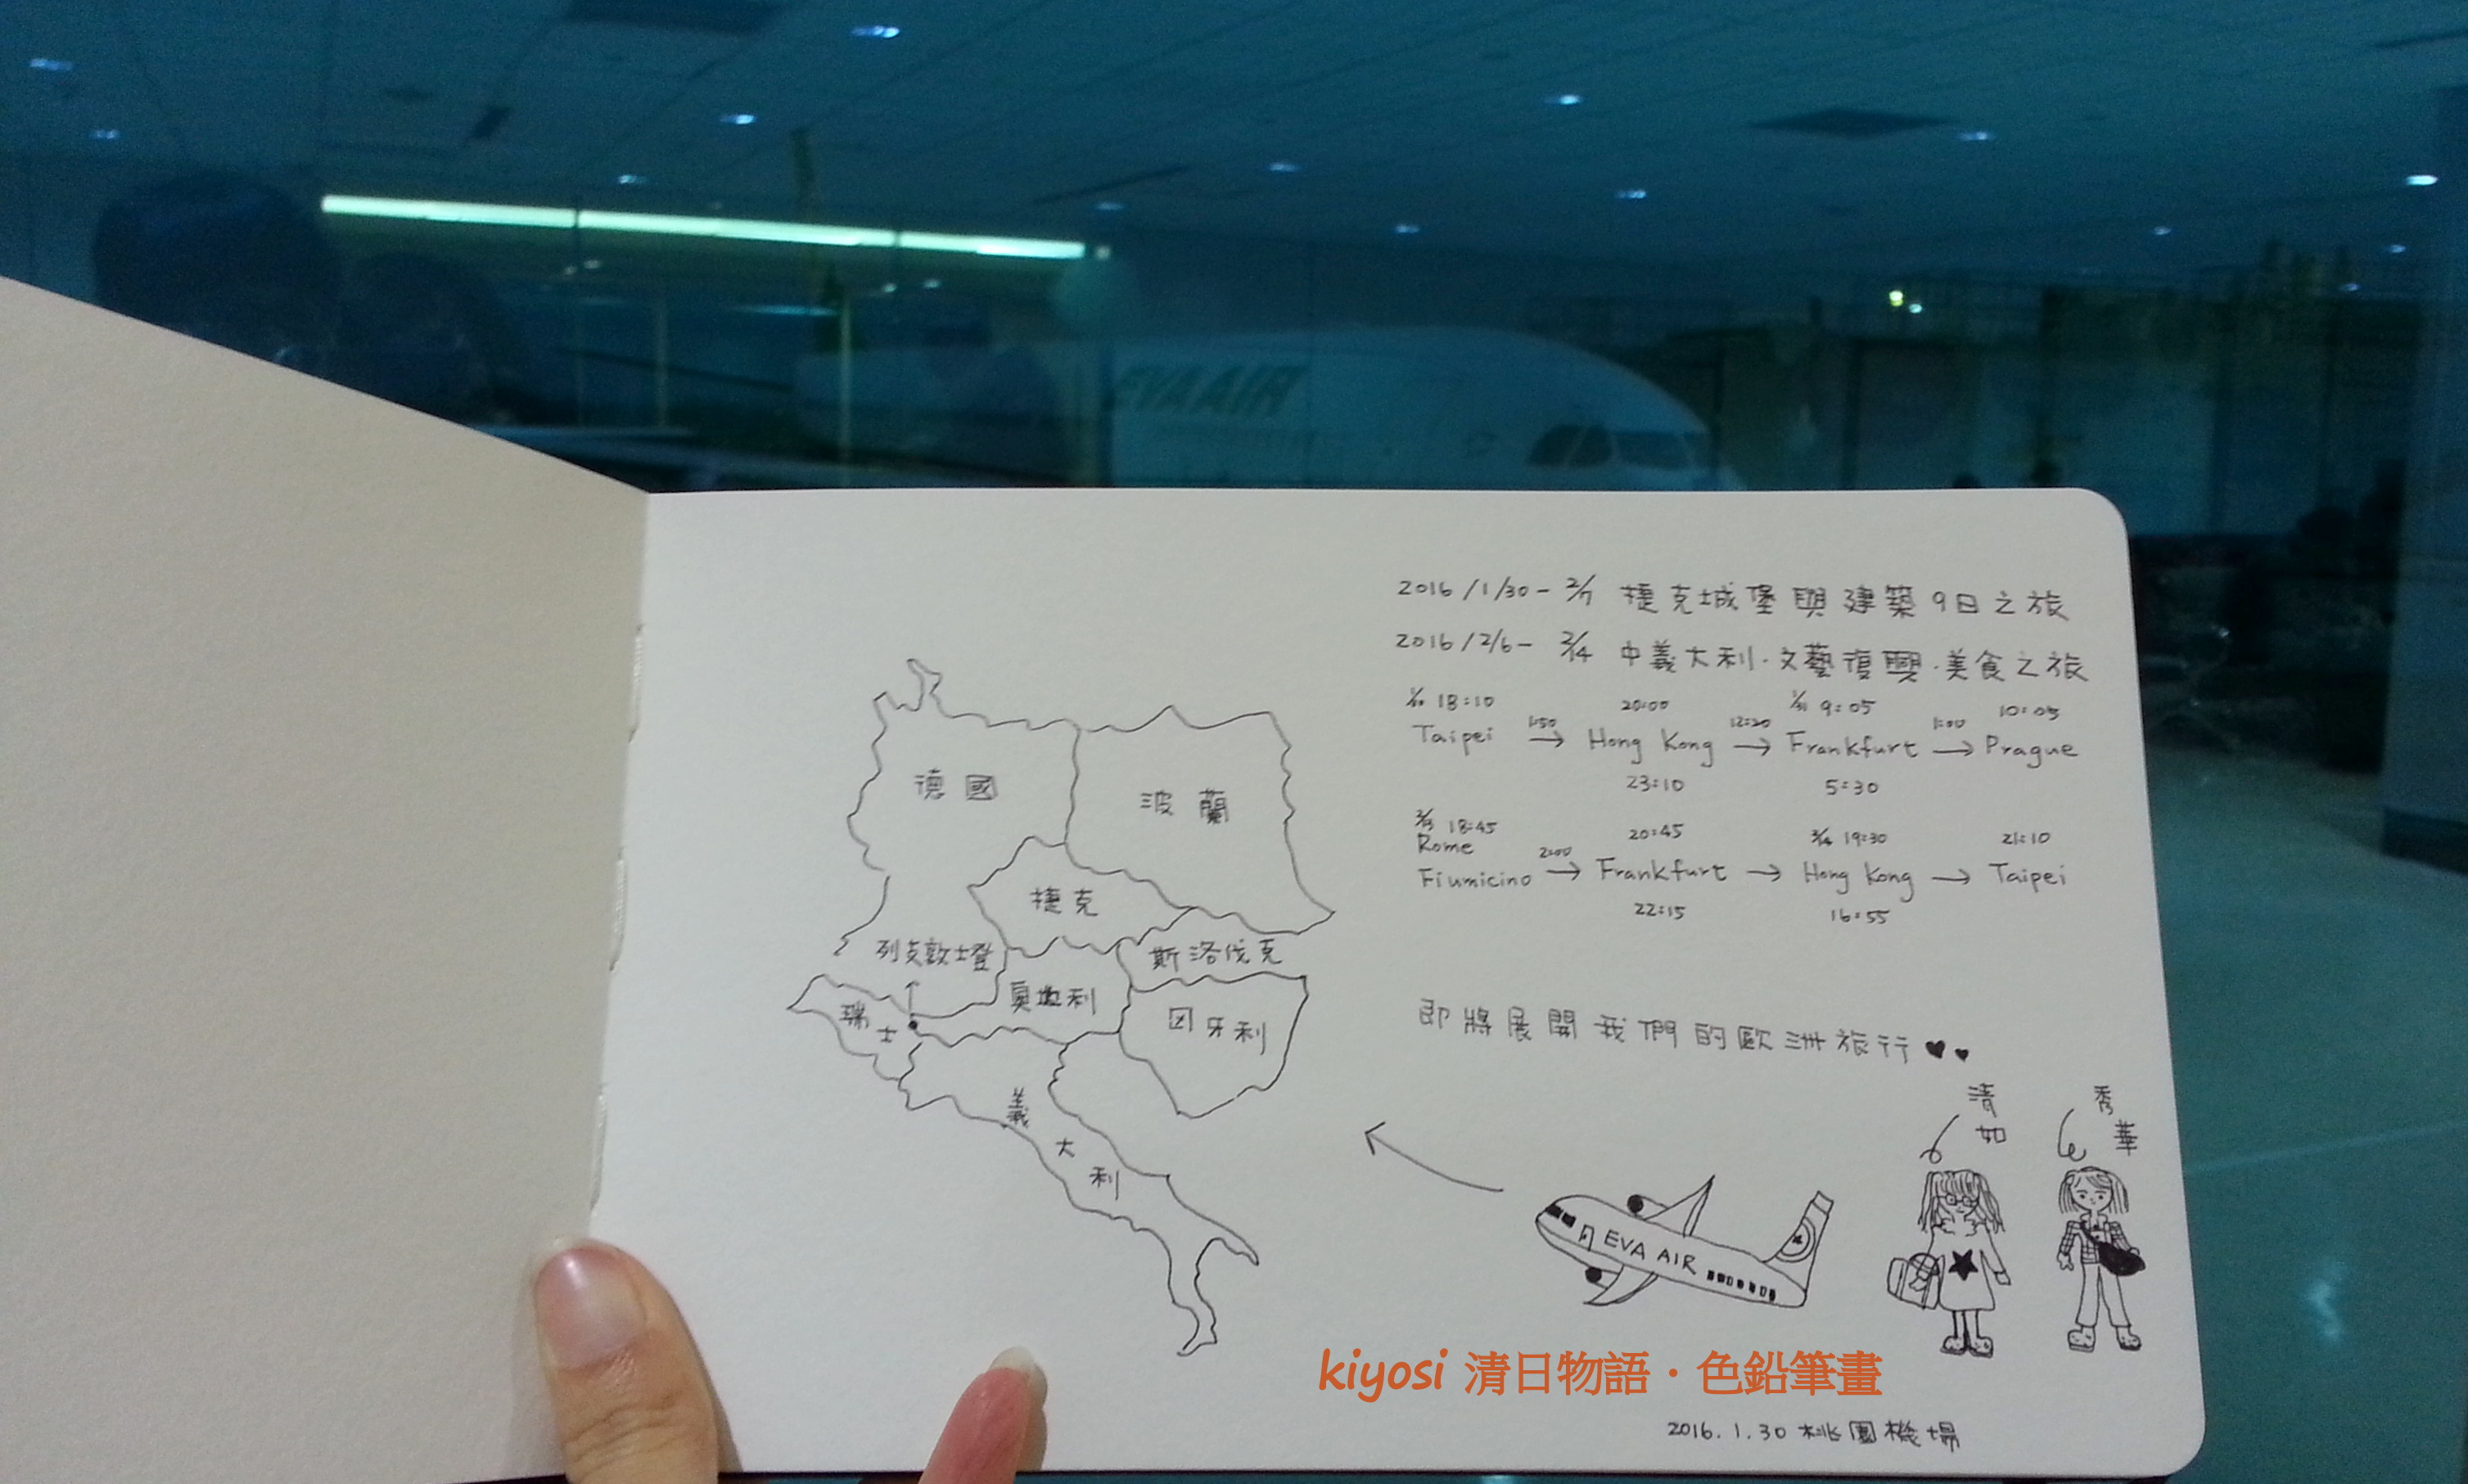 EVA AIR
2016/1/30-2/7 捷克城堡與建築9日之旅
2016/2/6-2/14 中義大利·文藝復興·美食之旅
1/30 18:10 20:00 1/31 9:05 10:05
1:50 12:20 1:00
Taipei → Hong Kong → Frankfurt → Prague
23:10 5:30
2/13 18:45 20:45 2/14 19:30 21:10
Rome
2:00
Fiumicino → Frankfurt → Hong Kong → Taipei
22:15 16:55
德國
波蘭
捷克
列支敦士登
斯洛伐克
奧地利
瑞士
匈牙利
義大利
即將展開我們的歐洲旅行♥♥
清如
秀華
EVA AIR
kiyosi 清日物語·色鉛筆畫
2016.1.30 桃園機場